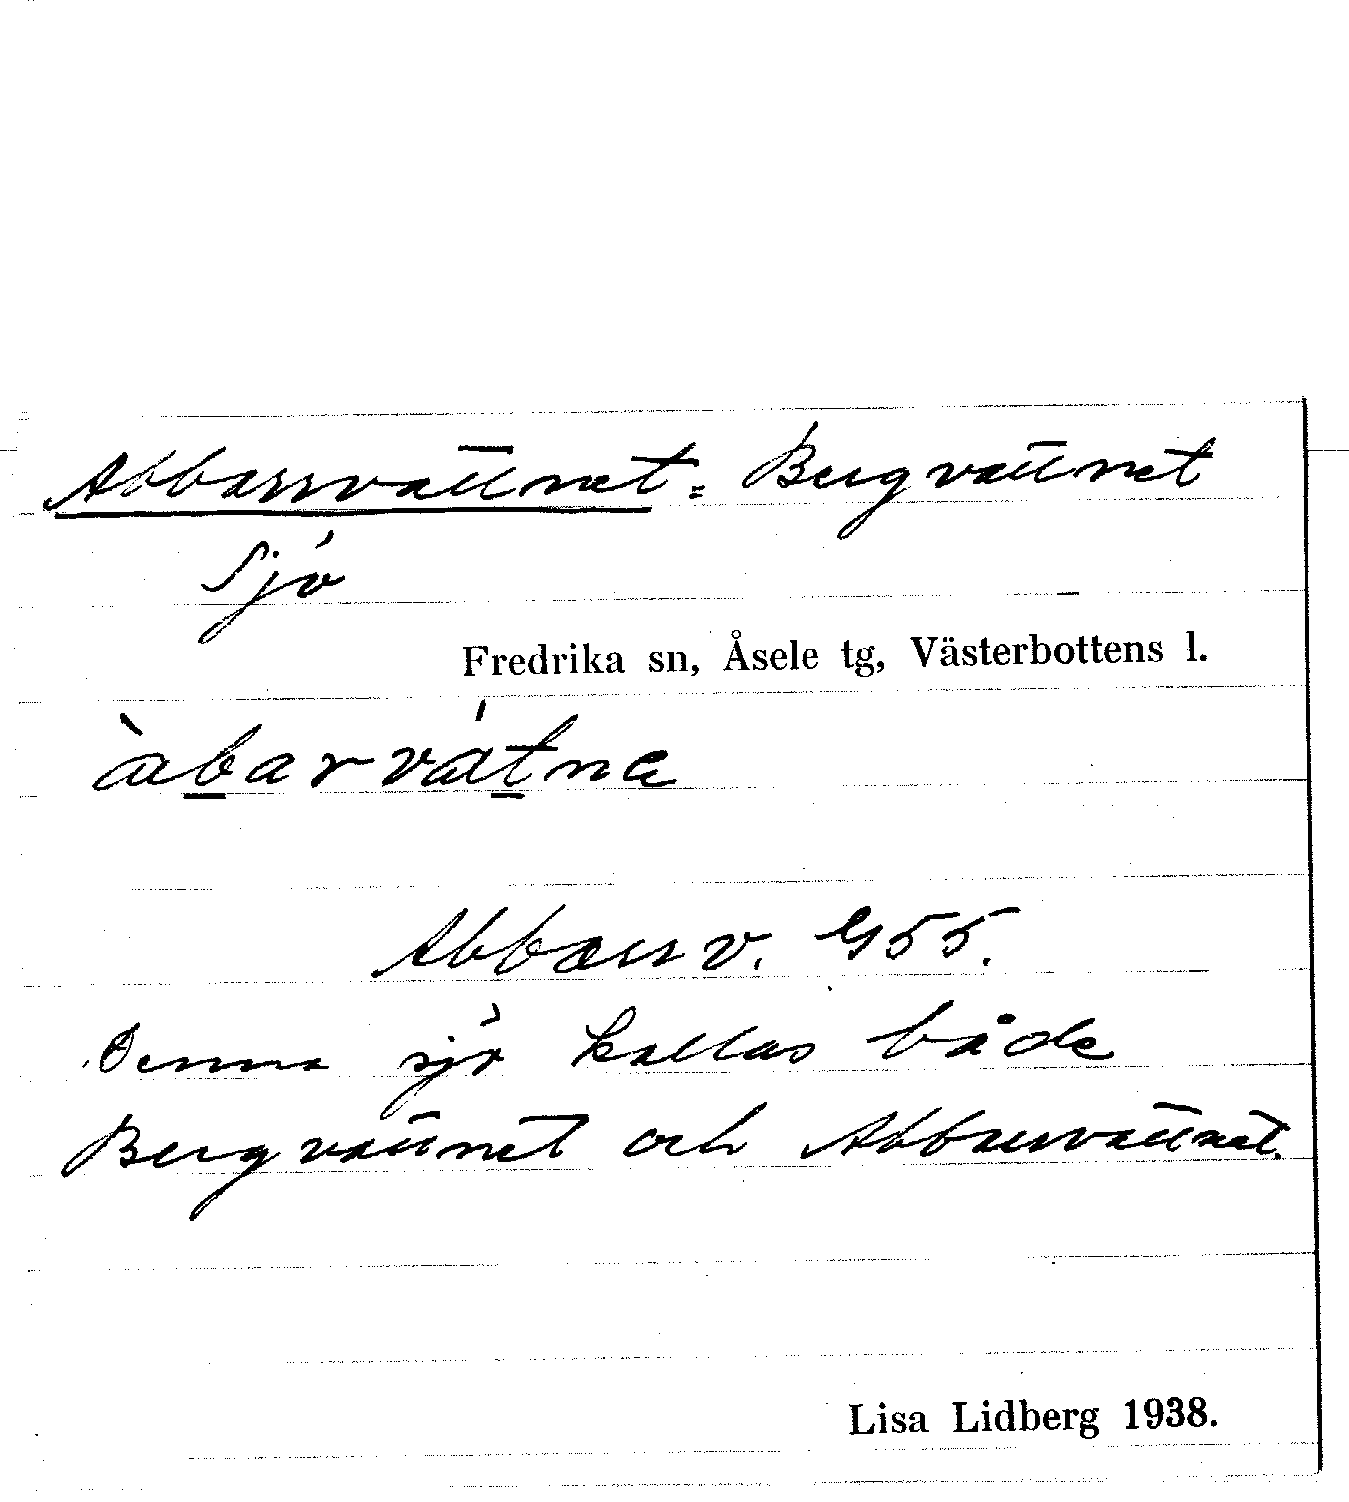 Abbarrvattnet = Bergvattnet
Sjö
Fredrika sn, Åsele tg, Västerbottens l.
àbarvátne
Abbarrv. G55.
Denna sjö kallas både
Bergvattnet och Abbarrvattnet.
Lisa Lidberg 1938.